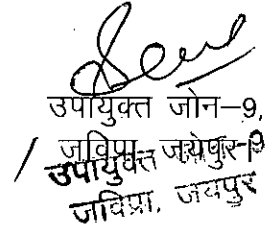 उपायुक्त जोन–9,
जविप्रा, जयपुर
उपायुक्त
जविप्रा, जयपुर